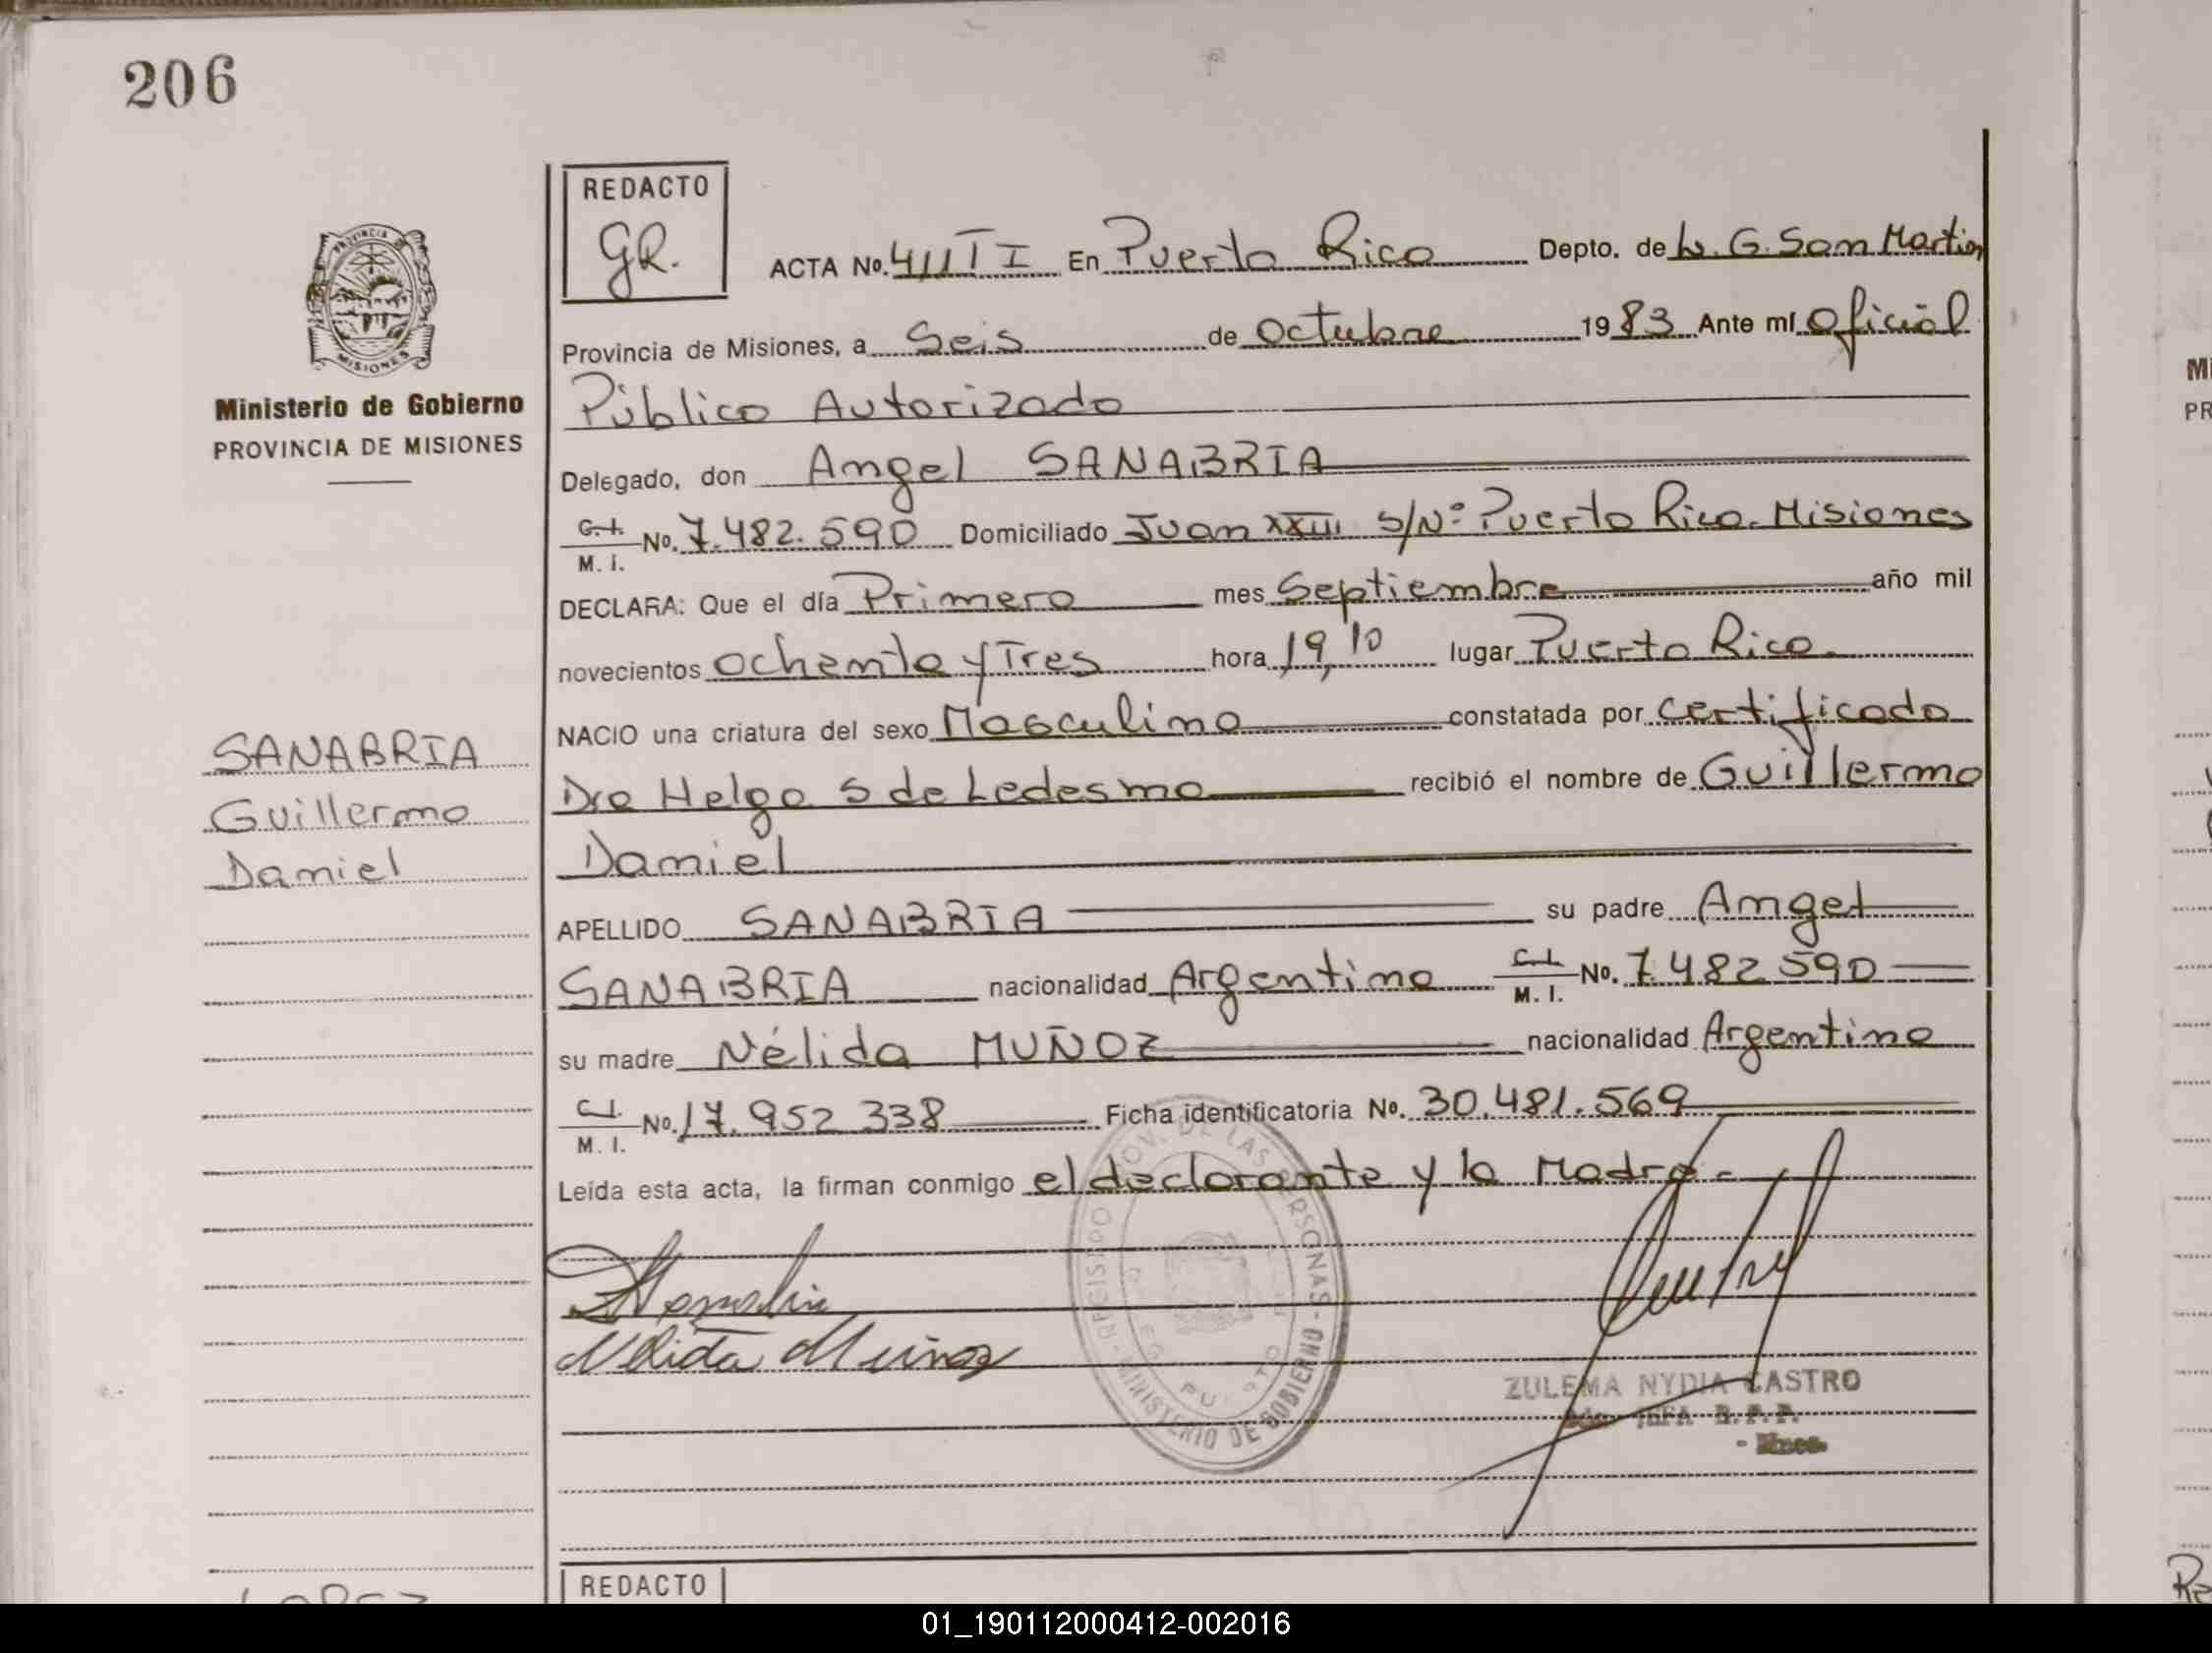 206
REDACTO
GR.
ACTA No. 411 T I En Puerto Rico Depto. de L. G. San Martin
Provincia de Misiones, a Seis de Octubre 1983 Ante mí Oficial
Público Autorizado
Delegado, don Angel SANABRIA
C.I. M. I. No. 7.482.590 Domiciliado Juan XXIII S/Nº Puerto Rico. Misiones
DECLARA: Que el día Primero mes Septiembre año mil
novecientos ochenta y Tres hora 19,10 lugar Puerto Rico.
NACIO una criatura del sexo Masculino constatada por certificado
Dra Helga S de Ledesma recibió el nombre de Guillermo
Daniel
APELLIDO SANABRIA su padre Angel
SANABRIA nacionalidad Argentina C.I. M. I. No. 7.482 590
su madre Nélida MUÑOZ nacionalidad Argentina
C.I. M. I. No. 17.952 338 Ficha identificatoria No. 30.481.569
Leída esta acta, la firman conmigo el declarante y la Madre.-
Nélida Muñoz
ZULEMA NYDIA CASTRO
JEFA R.P.P.
- Mnes.
REGISTRO PROV. DE LAS PERSONAS - MINISTERIO DE GOBIERNO -
PROVINCIA
MISIONES
Ministerio de Gobierno
PROVINCIA DE MISIONES
SANABRIA
Guillermo
Daniel
REDACTO
01_190112000412-002016